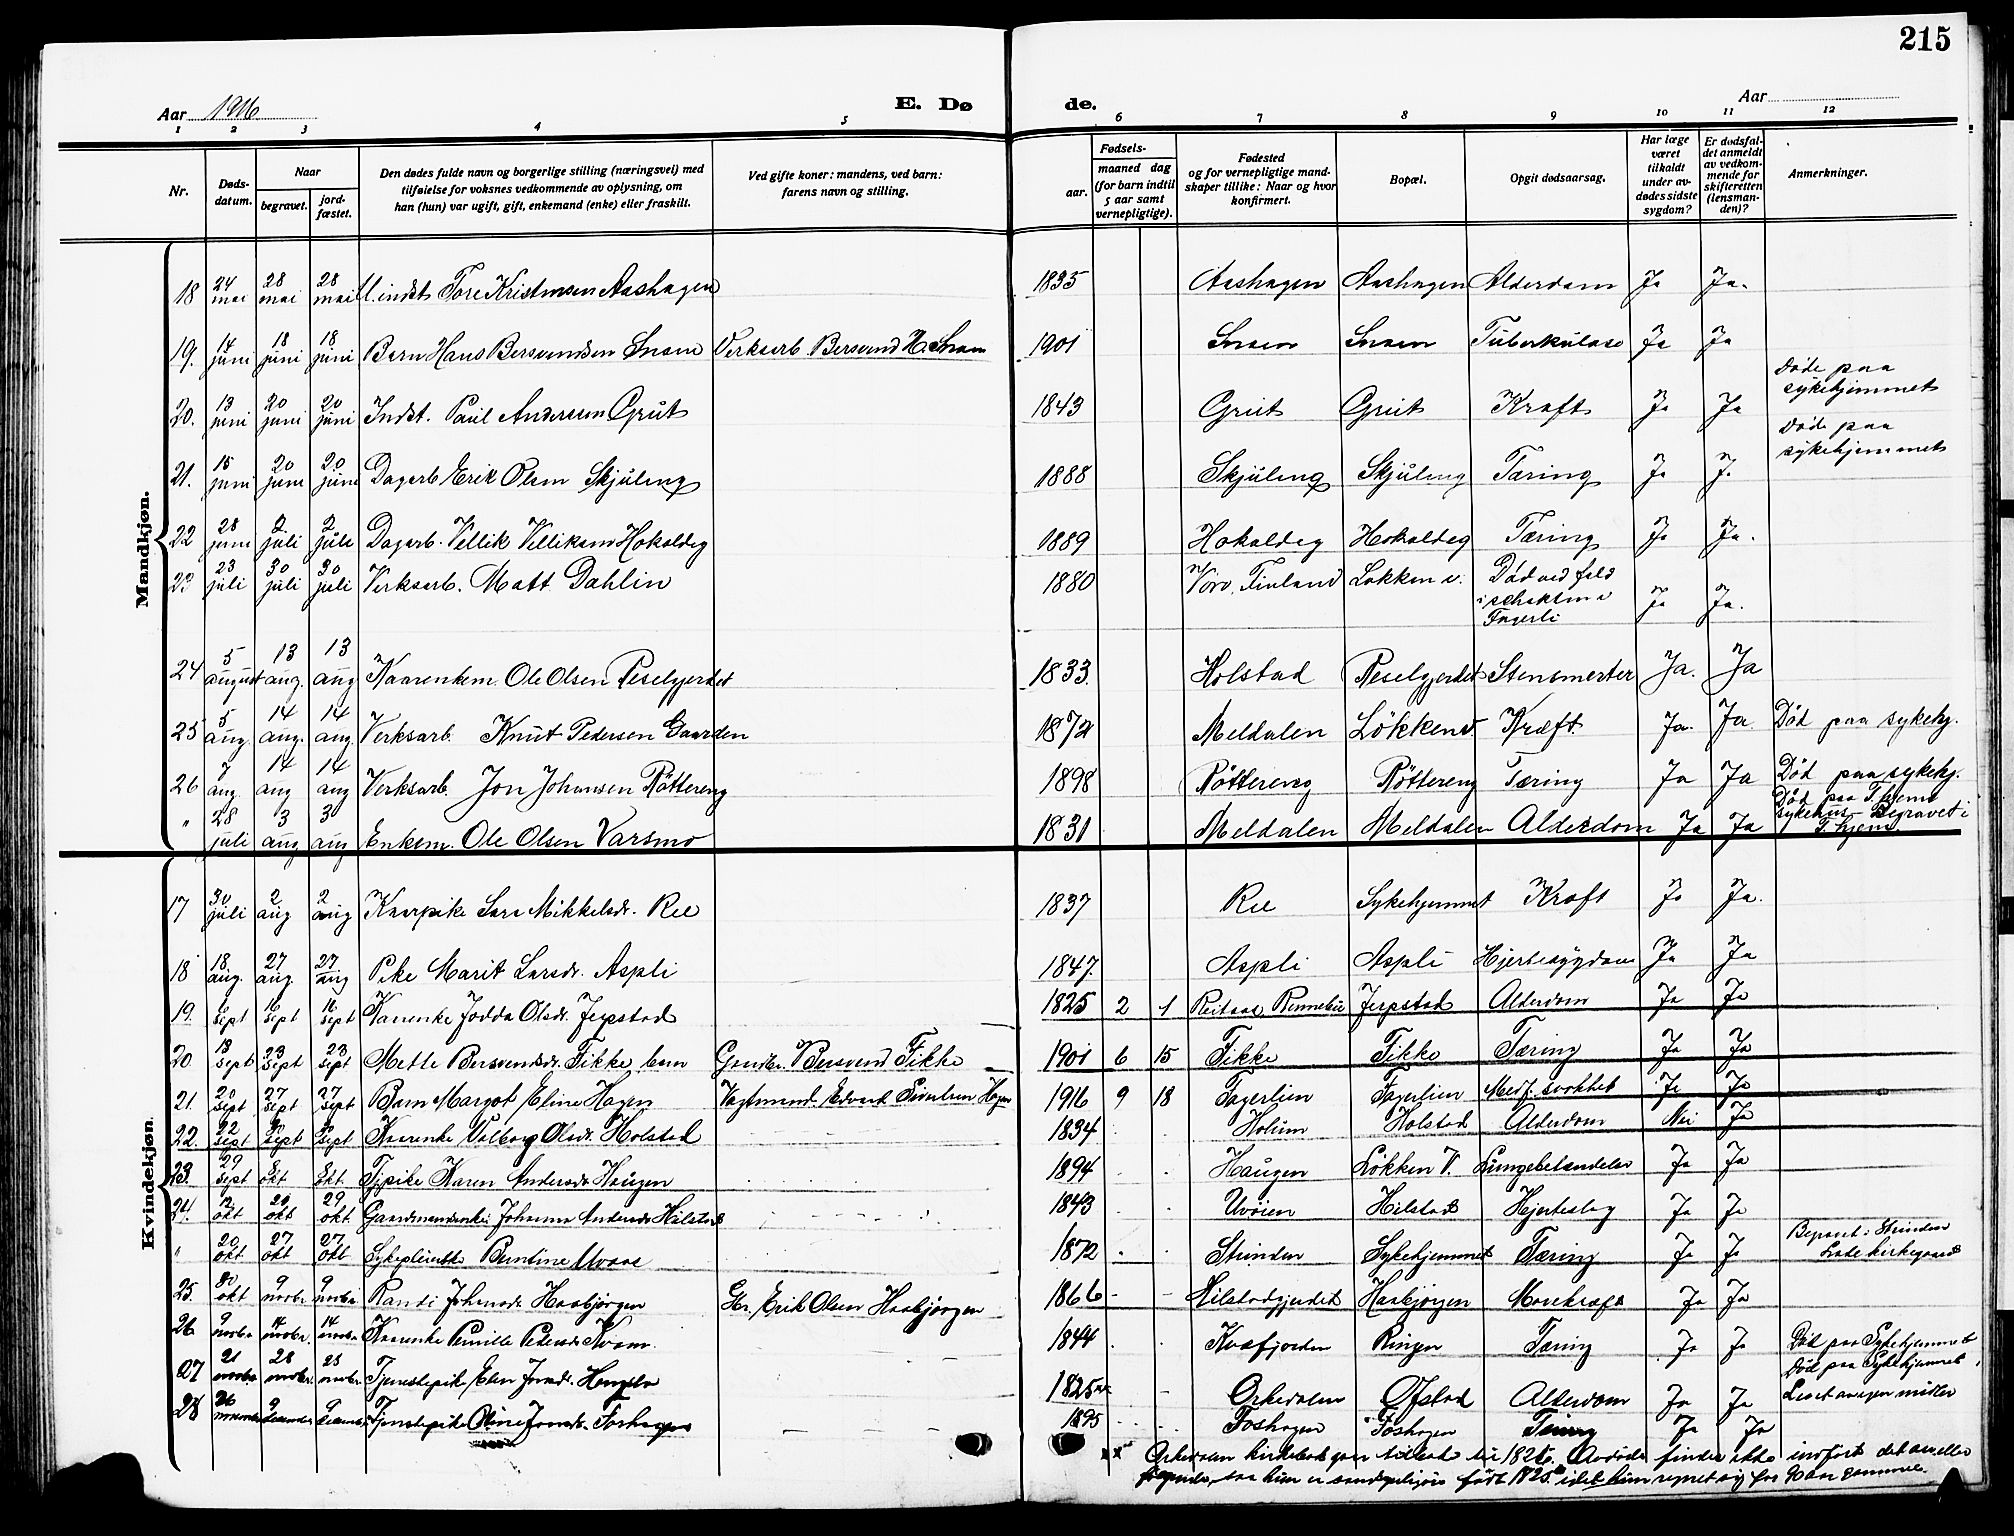 215
Aar 1916 E. Dø de. Aar
1 2 3 4 5 6 7 8 9 10 11 12
Nr.
Døds-
datum.
Naar
begravet.
jord-
fæstet.
Den dødes fulde navn og borgerlige stilling (næringsvei) med
tilføielse for voksnes vedkommende av oplysning, om
han (hun) var ugift, gift, enkemand (enke) eller fraskilt.
Ved gifte koner: mandens, ved barn:
farens navn og stilling.
Fødsels-
aar.
maaned dag
(for barn indtil
5 aar samt
vernepligtige).
Fødested
og for vernepligtige mand-
skaper tillike: Naar og hvor
konfirmert.
Bopæl.
Opgit dødsaarsag.
Har læge
været
tilkaldt
under av-
dødes sidste
sygdom?
Er dødsfal-
det anmeldt
av vedkom-
mende for
skifteretten
(lensman-
den)?
Anmerkninger.
Mandkjøn.
18 24 mai 28 mai 28 mai indst Tore Kristensen Aashagen 1835 Aashagen Aashagen Alderdom Ja Ja.
19. 14 juni 18 juni 18 juni Barn Hans Bersvendsen Snoen Verksarb. Bersvend H. Snoen 1901 Snoen Snoen Tuberkulose Ja Ja
20. 13 juni 20 juni 20 juni Indst. Paul Anderssen Grut 1843 Grut Grut Kræft Ja Ja Døde paa sykehjemmet
21. 15 juni 20 juni 20 juni Dagarb Erik Olsen Skjuleng 1888 Skjuleng Skjuleng Tæring Ja J. Død paa sykehjemmet
22 28 juni 2 juli 2 juli Dagarb. Villik Villiksen Hokaldeg 1889 Hokaldeg Hokaldeg Tæring Ja Ja.
23 23 juli 30 juli 30 juli Verksarb. Matt Dahlin 1880 Vörö, Finland Løkken v. Død ved fald i schakten i Fagerli Ja Ja.
24 5 august 13 aug. 13 aug Kaarenkem. Ole Olsen Reselgjerdet 1833. Holstad Reselgjerdet Stensmerter Ja. Ja
25 5 aug. 14 aug. 14 aug. Verksarb. Knut Pedersen Gaarden 1872 Meldalen Løkken v. Kræft. Ja. Ja. Død paa sykehj.
26 7 aug. 14 aug 14 aug Verksarb. Jon Johansen Røttereng 1898 Røttereng Røttereng Tæring Ja Ja Død paa sykehj.
" 28 juli 3 aug 3 aug Enkem. Ole Olsen Varsmo 1831 Meldalen Meldalen Alderdom Ja Ja Død paa T.hjems sykehus Begravet i T.hjem
Kvindekjøn.
17 30 juli 2 aug 2 aug Kaarpike Sara Mikkelsdr. Ree 1837 Ree Sykehjemmet Kræft Ja Ja.
18 18 aug. 27 aug. 27 aug Pike Marit Larsdr. Aspli 1847. Aspli Aspli Hjertesygdom Ja Ja
19. 6 sept 16 sept 16 sept Kaarenke Jodda Olsdr. Jerpstad 1825 2 1 Reitaas Rennebu Jerpstad Alderdom Ja Ja
20 13 sept 23 sept 23 sept Mette Bersvendsdr. Fikke, barn Gaardbr. Bersvend Fikke 1901 6 15 Fikke Fikke Tæring Ja Ja
21. 20 sept 27 sept 27 sept Barn Margot Eline Hagen Vagtmand. Edvart Sivertsen Hagen 1916 9 18 Fagerlien Fagerlien Medf. svakhet Ja Ja
22. 22 sept sept sept Kaarenke Valborg Olsdr. Holstad 1834 Holum Holstad Alderdom Nei Ja
23. 29 sept 8 okt 8 okt. Tjpike Karen Andersdr Haugen 1894 Haugen Løkken V. Lungebetændelse Ja Ja
24. 12 okt 29 okt 29 okt. Gaardmandsenke Johanna Andersdr Hilstad 1843 Uvöien Hilstad Hjerteslag Ja Ja
" 20 okt 27 okt 27 okt Sykepleierske Berntine Moaas 1872 Strinden Sykehjemmet Tæring Ja Ja Begravet i Strinden Lade kirkegaard
25. 30 okt 9 novbr. 9 novbr. Randi Johnsdr Haabjørgen Gbr. Erik Olsen Haabjørgen 1866 Hilstadgjerdet Haabjørgen Mavekræft Ja Ja
26 9 novbr 14 novbr. 14 novbr. Kaarenke Pernille Pedersdr Kvam. 1844 Kvæfjorden Ringen Tæring Ja Ja Død paa Sykehjemmet
27 21 novbr. 28 novbr. 28 novbr. Tjenestepike Elen Jonsdr. 1825 ** Orkedalen Ofstad Alderdom Ja Ja Død paa Sykehjemmet
28 26 november 9 december 9 december Tjenestepike Oline Jonsdr. Foshagen 1895 Foshagen Foshagen Tæring Ja Ja
** Orkedalen kirkebok gaar tilbake til 1825. Avdøde findes ikke indført det aar eller
følgende, saa hun er sandsynligvis født 1825 idet hun regnet sig for 90 aar gammel.